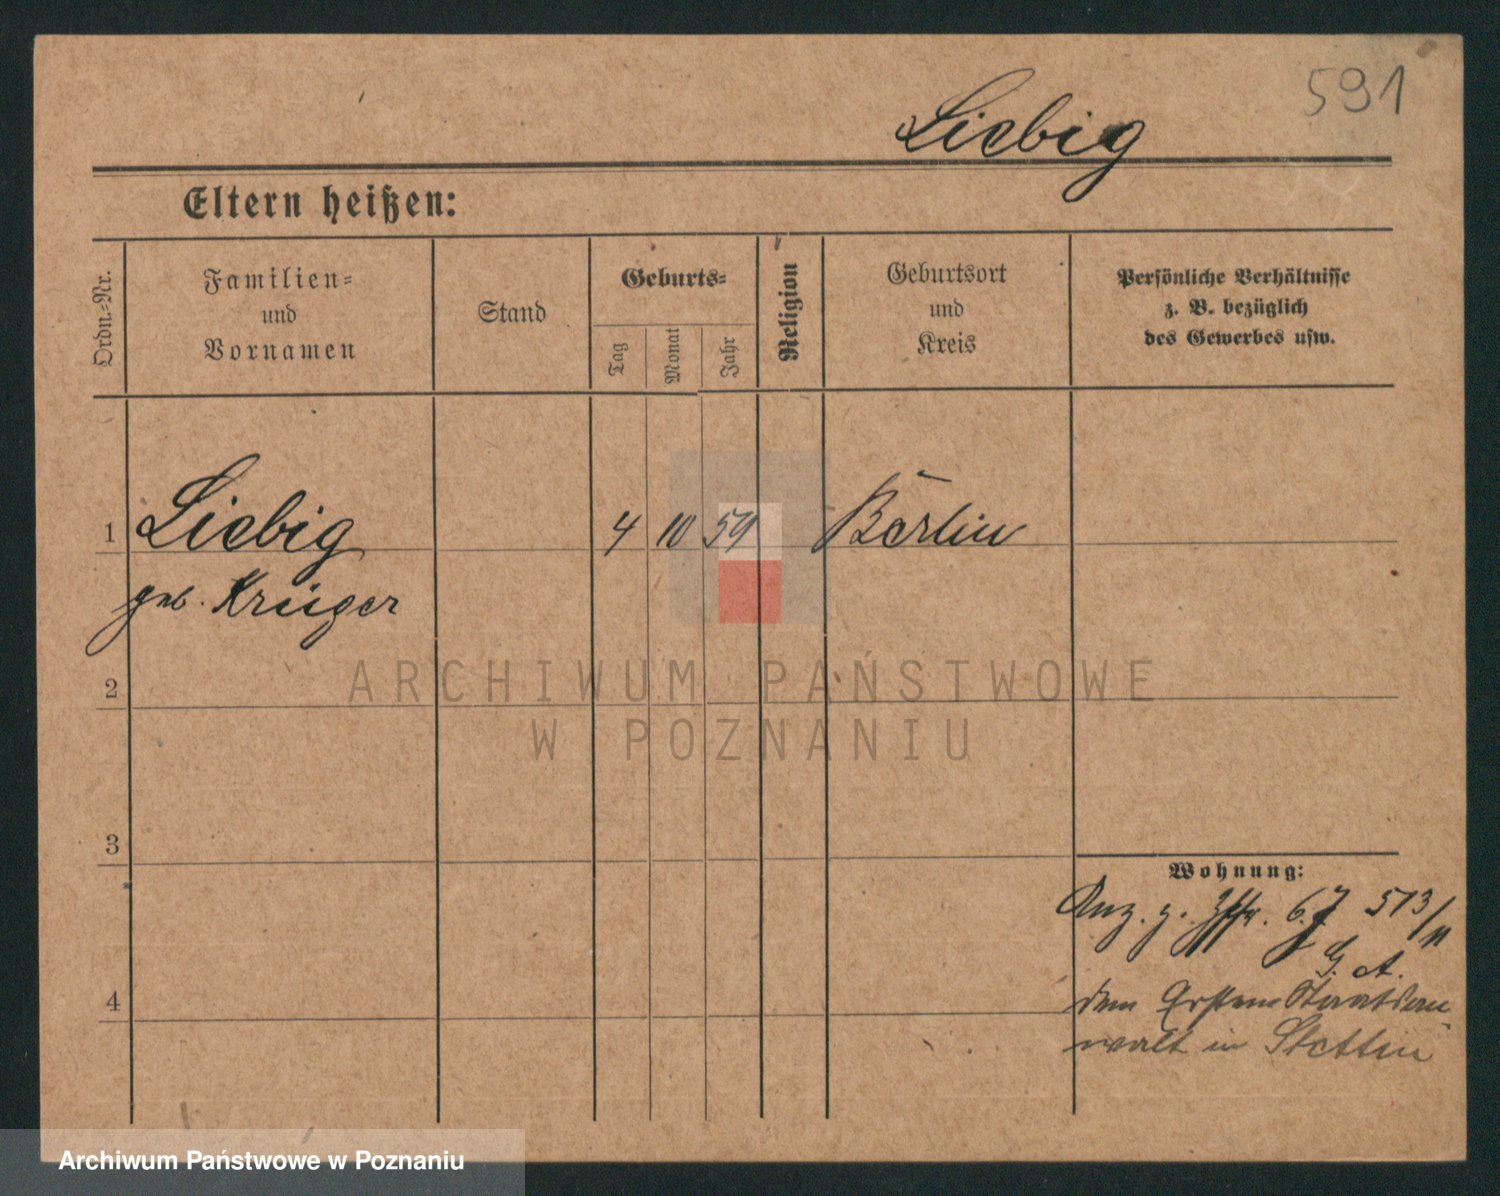 591
Liebig
Eltern heißen:
Ordn.=Nr.
Familien=
und
Vornamen
Stand
Geburts=
Tag
Monat
Jahr
Religion
Geburtsort
und
Kreis
Persönliche Verhältnisse
z. B. bezüglich
des Gewerbes usw.
1
Liebig
geb. Krüger
4 10 59
Berlin
2
ARCHIWUM PAŃSTWOWE
W POZNANIU
3
Wohnung:
Anz. z. 6. J 513/11
G. A.
dem Ersten Staatsan
walt in Stettin
4
Archiwum Państwowe w Poznaniu